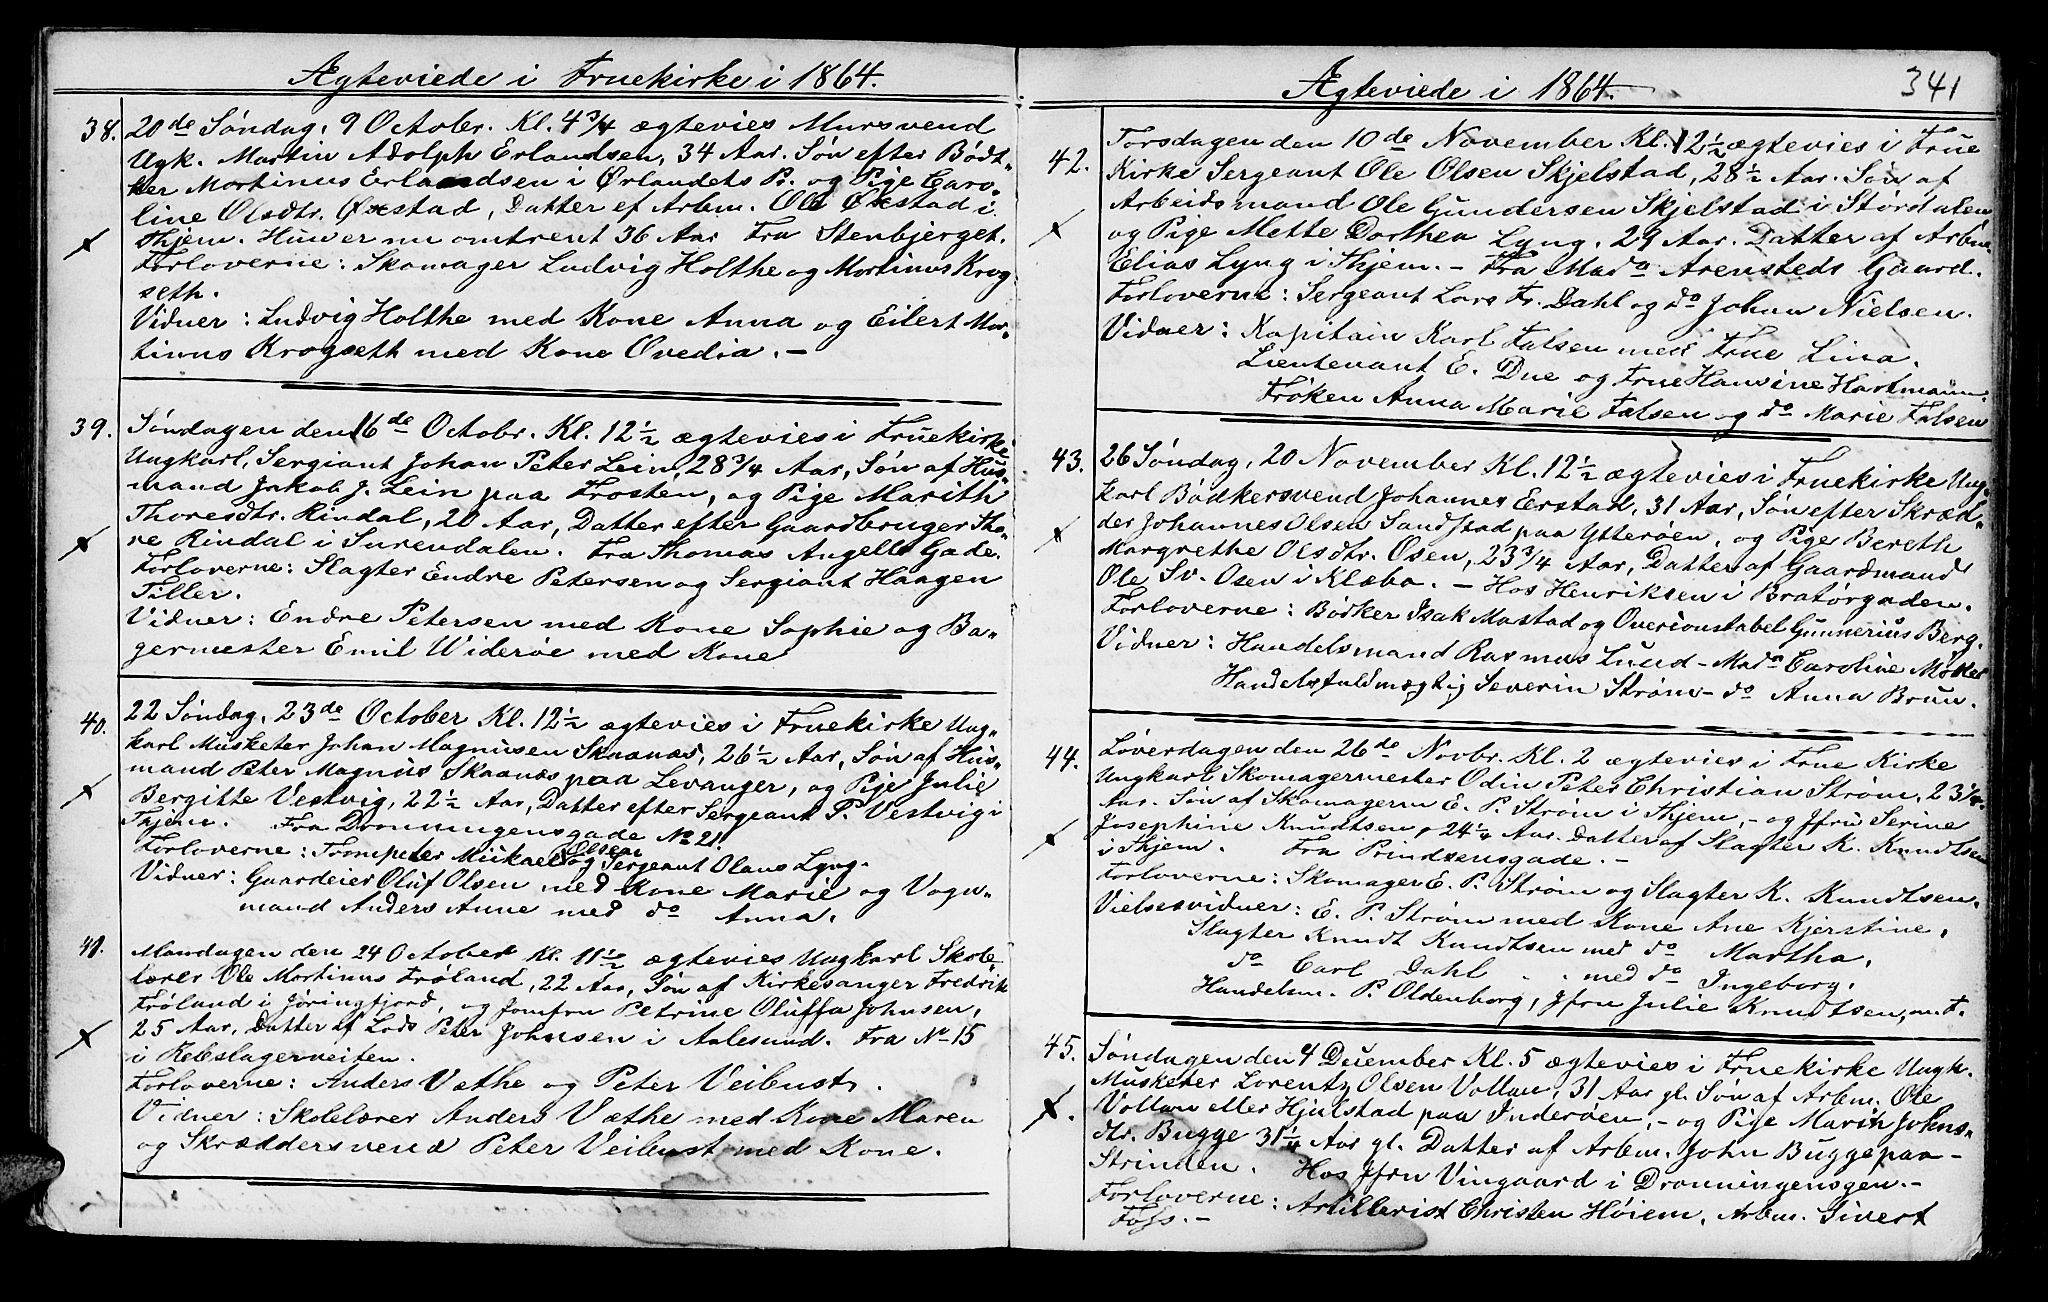 Ægteviede i Fruekirke i 1864.
38. 20de Søndag, 9 Octobr. Kl. 4 3/4 ægtevies Mursvend
Ugk. Martin Adolph Erlandsen, 34 Aar. Søn efter Bødt-
ker Mortinus Erlandsen i Ørlandets Pr. og Pige Caro-
line Olsdtr. Øxstad, Datter ef Arbm. Ole Øxstad i
Thjem. Hun er nu omtrent 36 Aar Fra Stenbjerget.
Forloverne: Skomager Ludvig Holthe og Mortinus Krog
seth.
Vidner: Ludvig Holthe med Kone Anna og Eilert Mor-
tinus Krogseth med Kone Ovedia. -
39. Søndagen den 16de Octobr. Kl. 12 1/2 ægtevies i Fruekirke
Ungkarl, Sergiant Johan Peter Lein, 28 3/4 Aar, Søn af Hus-
mand Jakob J. Lein paa Frosten, og Pige Marith
Thoresdtr. Rindal, 20 Aar, Datter efter Gaardbruger Tho-
re Rindal i Surendalen. Fra Thomas Angells Gade.
Forloverne: Slagter Endre Petersen og Sergiant Haagen
Tiller.
Vidner: Endre Petersen med Kone Sophie og Ba-
germester Emil Widerøe med Kone
40. 22 Søndag, 23de October Kl. 12 1/2 ægtevies i Fruekirke Ung-
karl Musketer Johan Magnusen Skaanæs, 26 1/2 Aar, Søn af Hus-
mand Peter Magnus Skaanæs paa Levanger, og Pije Julie
Bergitte Vestvig, 22 1/2 Aar, Datter efter Sergeant P. Vestvig i
Thjem. Fra Dronningensgade No 21.
Forloverne: Trompeter Miikael Olsen og Sergeant Olaus Lyng.
Vidner: Gaardeier Oluf Olsen med Kone Marie og Vogn-
mand Anders Aune med do Anna.
41. Mandagen den 24 October Kl. 11 1/2 ægtevies Ungkarl Skole-
lærer Ole Mortinus Frøland, 22 Aar, Søn af Kirkesanger Fredrik
Frøland i Joringfjord, og Jomfru Petrine Oluffa Johnsen,
25 Aar, Datter af Lods Peter Johnsen i Aalesund. Fra No 15
i Rebslagerveiten.
Forloverne: Anders Væthe og Peter Veibust.
Vidner: Skolelærer Anders Væthe med Kone Maren
og Skræddersvend Peter Veibust med Kone.
Ægteviede i 1864. 341
Torsdagen den 10de November Kl. 12 1/2 ægtevies i Frue
42. Kirke Sergeant Ole Olsen Skjelstad, 28 1/2 Aar. Søn af
Arbeidsmand Ole Gundersen Skjelstad i Stordalen
og Pige Mette Dorthea Lyng, 29 Aar. Datter af Arbm.
Elias Lyng i Thjem. - Fra Mada Arensteds Gaard.
Forloverne: Sergeant Lars Fr. Dahl og do Johan Nielsen.
Vidner: Kapitain Karl Falsen med Frue Lina.
Lieutenant E. Due og Frue Hansine Hartmann.
Frøken Anna Marie Falsen og do Marie Falsen
43. 26 Søndag, 20 November Kl. 12 1/2 ægtevies i Fruekirke Ung-
karl Bødkersvend Johannes Erstad, 31 Aar, Søn efter Skræd-
der Johannes Olsen Sandstad paa Ytterøen, og Pige Bereth
Margrethe Olsdtr. Osen, 23 3/4 Aar, Datter af Gaardmand
Ole Sv. Osen i Klæbo. - Hos Henriksen i Bratørgaden.
Forloverne: Bødker Isak Mastad og Overconstabel Gunnerius Berg.
Vidner: Handelsmand Rasmus Lund - Mada Caroline Møller
Handelsfuldmægtig Severin Strøm - do Anna Brun.
44. Løverdagen den 26de Novbr. Kl. 2 ægtevies i Frue Kirke
Ungkarl Skomagermester Odin Peter Christian Strøm, 23 1/4
Aar. Søn af Skomagerm E. P. Strøm i Thjem, - og Jfru Serine
Josephine Knudtsen, 24 1/4 Aar. Datter af Slagter K. Knudtsen
i Thjem. Fra Prindsensgade. -
Forloverne: Skomager E. P. Strøm og Slagter K. Knudtsen.
Vielsesvidner: E. P. Strøm med Kone Ane Kjerstine,
Slagter Knudt Knudtsen med do Martha,
do Carl Dahl . . med do Ingeborg,
Handelsm. P. Oldenborg, Jfru Julie Knudtsen, m. f.
45. Søndagen den 4 December Kl. 5 ægtevies i Fruekirke Ungk.
Musketer Lorentz Olsen Vollan, 31 Aar gl. Søn af Arbm. Ole
Vollan eller Hjulstad paa Inderøen, - og Pige Marith Johns-
dtr. Bugge 31 1/4 Aar gl. Datter af Arbm. John Bugge paa -
Strinden. Hos Jfru Vingaard i Dronningensgen. -
Forloverne: Artillerist Christen Høiem, Arbm. Sivert
Foss. -